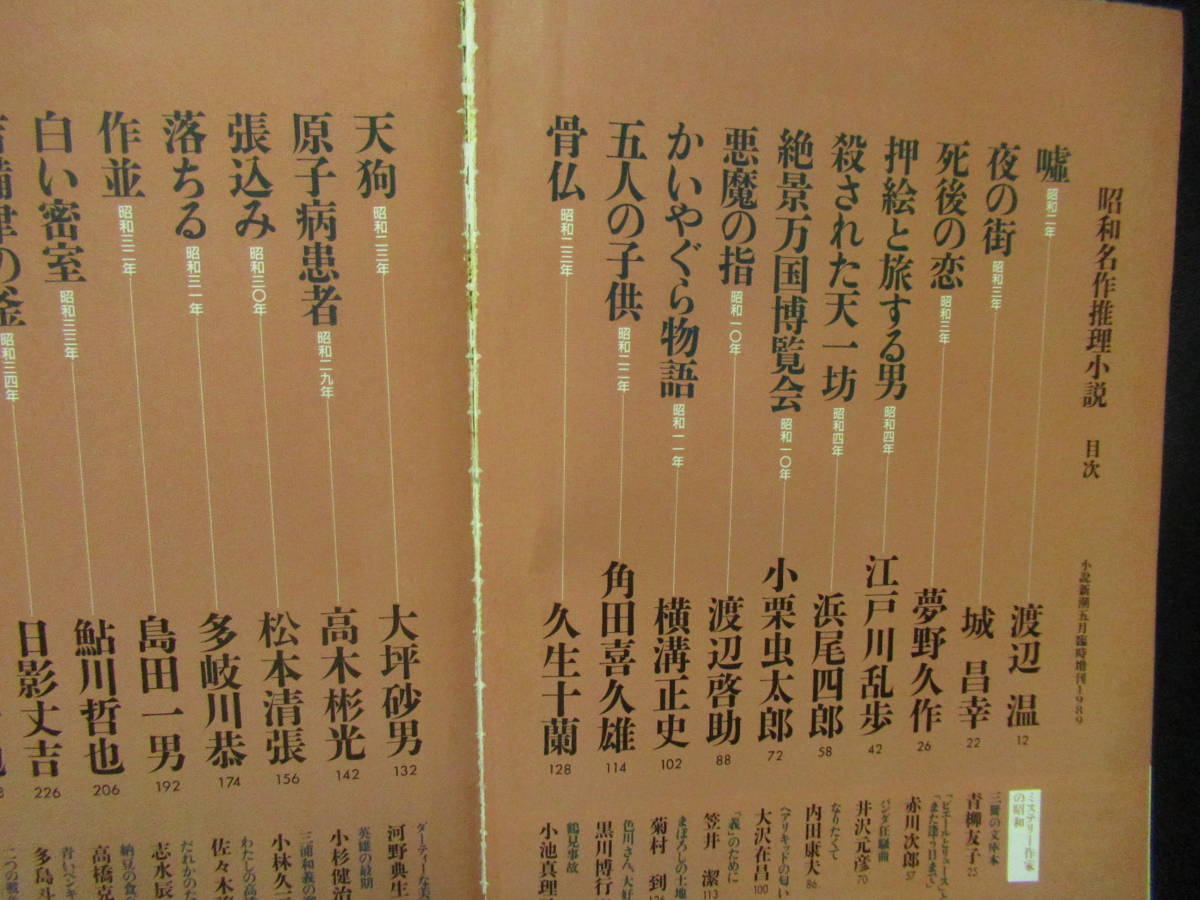 昭和名作推理小説 目次
小説新潮五月臨時増刊1989
嘘 昭和二年 渡辺 温 12
夜の街 昭和三年 城 昌幸 22
死後の恋 昭和三年 夢野久作 26
押絵と旅する男 昭和四年 江戸川乱歩 42
殺された天一坊 昭和四年 浜尾四郎 58
絶景万国博覧会 昭和一〇年 小栗虫太郎 72
悪魔の指 昭和一〇年 渡辺啓助 88
かいやぐら物語 昭和一一年 横溝正史 102
五人の子供 昭和二二年 角田喜久雄 114
骨仏 昭和二三年 久生十蘭 128
天狗 昭和二三年 大坪砂男 132
原子病患者 昭和二九年 高木彬光 142
張込み 昭和三〇年 松本清張 156
落ちる 昭和三一年 多岐川恭 174
作並 昭和三二年 島田一男 192
白い密室 昭和三三年 鮎川哲也 206
備津の釜 昭和三四年 日影丈吉 226
ミステリー作家
の昭和
三冊の文庫本
青柳友子 25
「ピエールとリュース」と
「また逢う日まで」
赤川次郎 57
パンダ狂騒曲
井沢元彦 70
なりたくて
内田康夫 86
ヘアリキッドの匂い
大沢在昌 100
「義」のために
笠井 潔 113
まぼろしの土地
菊村 到 126
色川さん、大好
黒川博行
鶴見事故
小池真理
ダーティーな美
河野典生
英雄の最期
小杉健治
三浦和義の
小林久三
わたしの高
佐々木
だれかのた
志水辰
納豆の食
高橋克
青いペンキ
多島斗
二つの戦